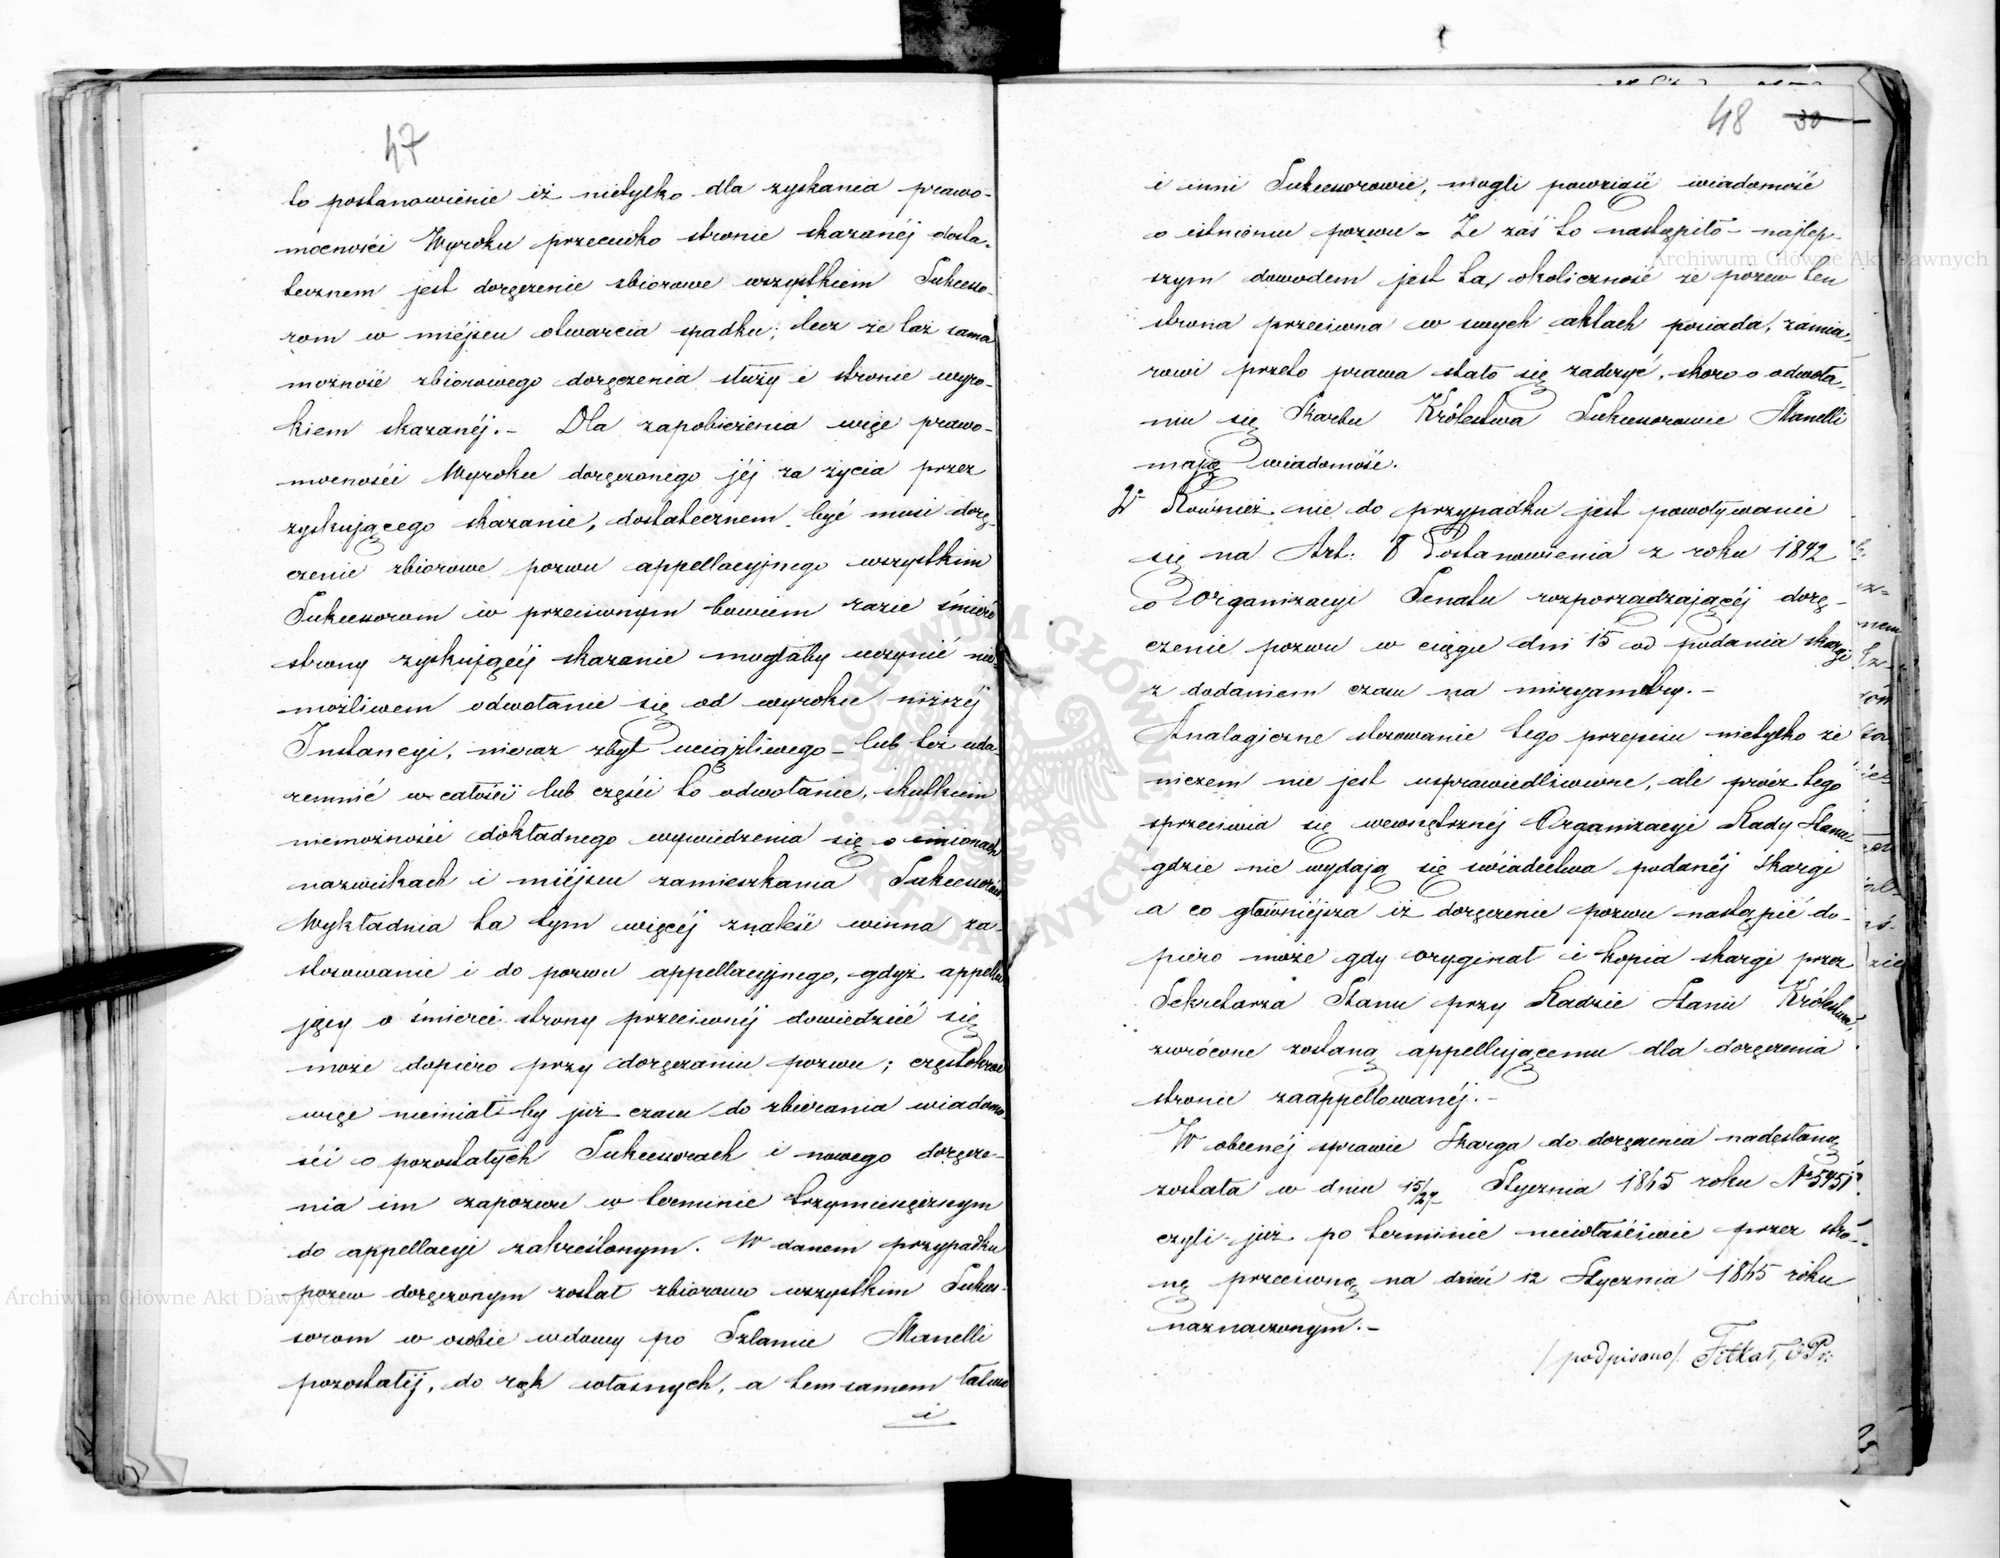 47
to postanowienie iż nietylko dla zyskania prawo-
mocności Wyroku przeciwko stronie skazanéj dosta-
tecznem jest doręczenie zbiorowe wszystkiem Sukcesso-
rom w miéjscu otwarcia spadku; lecz że taż sama
możność zbiorowego doręczenia służy i stronie wyro-
kiem skazanéj.- Dla zapobieżenia więc prawo-
mocności Wyroku doręczonego jéj za życia przez
zyskującego skazanie, dostatecznem być musi dorę-
czenie zbiorowe pozwu appellacyjnego wszystkim
Sukcessorom w przeciwnym bowiem razie śmierć
strony zyskującéj skazanie mogłaby uczynić nie-
możliwem odwołanie się od wyroku niższéj
Instancyi, nieraz zbyt uciążliwego - lub też uda-
remnić w całości lub części to odwołanie, skutkiem
niemożności dokładnego wywiedzenia się o imionach
nazwiskach i miéjscu zamieszkania Sukcessorów
Wykładnia ta tym więcéj znaleść winna za-
stosowanie i do pozwu appellacyjnego, gdyż appellu-
jący o śmierci strony przeciwnéj dowiedzieć się
może dopiero przy doręczaniu pozwu; częstokroć
więc niemiał-by już czasu do zbierania wiadomo-
ści o pozostałych Sukcessorach i nowego doręcze-
nia im zapozwu w terminie trzymiesięcznym
do appellacyi zakreślonym. W danem przypadku
pozew doręczonym został zbiorowo wszystkim Sukces-
sorom w osobie wdowy po Szlamie Manelli
pozostałéj, do rąk własnych, a temsamem łatwo
i
48 30
i inni Sukcessorowie, mogli powziąść wiadomość
o istnieniu pozwu - Że zaś to nastąpiło - najlep-
szym dowodem jest ta, okoliczność że pozew ten
strona przeciwna w swych aktach posiada, zamia-
rowi przeto prawa stało się zadosyć, skoro o odwoła-
niu się Skarbu Królestwa Sukcessorowie Manelli
mają wiadomość.
2° Również nie do przypadku jest powoływanie
się na Art: 8 Postanowienia z roku 1842
o Organizacyi Senatu rozporządzającéj dorę-
czenie pozwu w ciągu dni 15 od podania skargi
z dodaniem czasu na miryametry.-
Analogiczne stosowanie tego przepisu nietylko że
niczem nie jest usprawiedliwione, ale prócz tego
sprzeciwia się wewnętrznéj Organizacyi Rady Stanu
gdzie nie wydają się świadectwa podanéj skargi
a co główniejsza iż doręczenie pozwu nastąpić do-
piero może gdy oryginał i kopia skargi przez
Sekretarza Stanu przy Radzie Stanu Królestwa,
zwrócone zostaną appellującemu dla doręczenia
stronie zaappellowanéj.-
W obecnéj sprawie Skarga do doręczenia nadesłaną
została w dniu 15/27 Stycznia 1865 roku № 5451
czyli już po terminie niewłaściwie przez stro-
nę przeciwną na dzień 12 Stycznia 1865 roku
naznaczonym.-
/podpisano/.